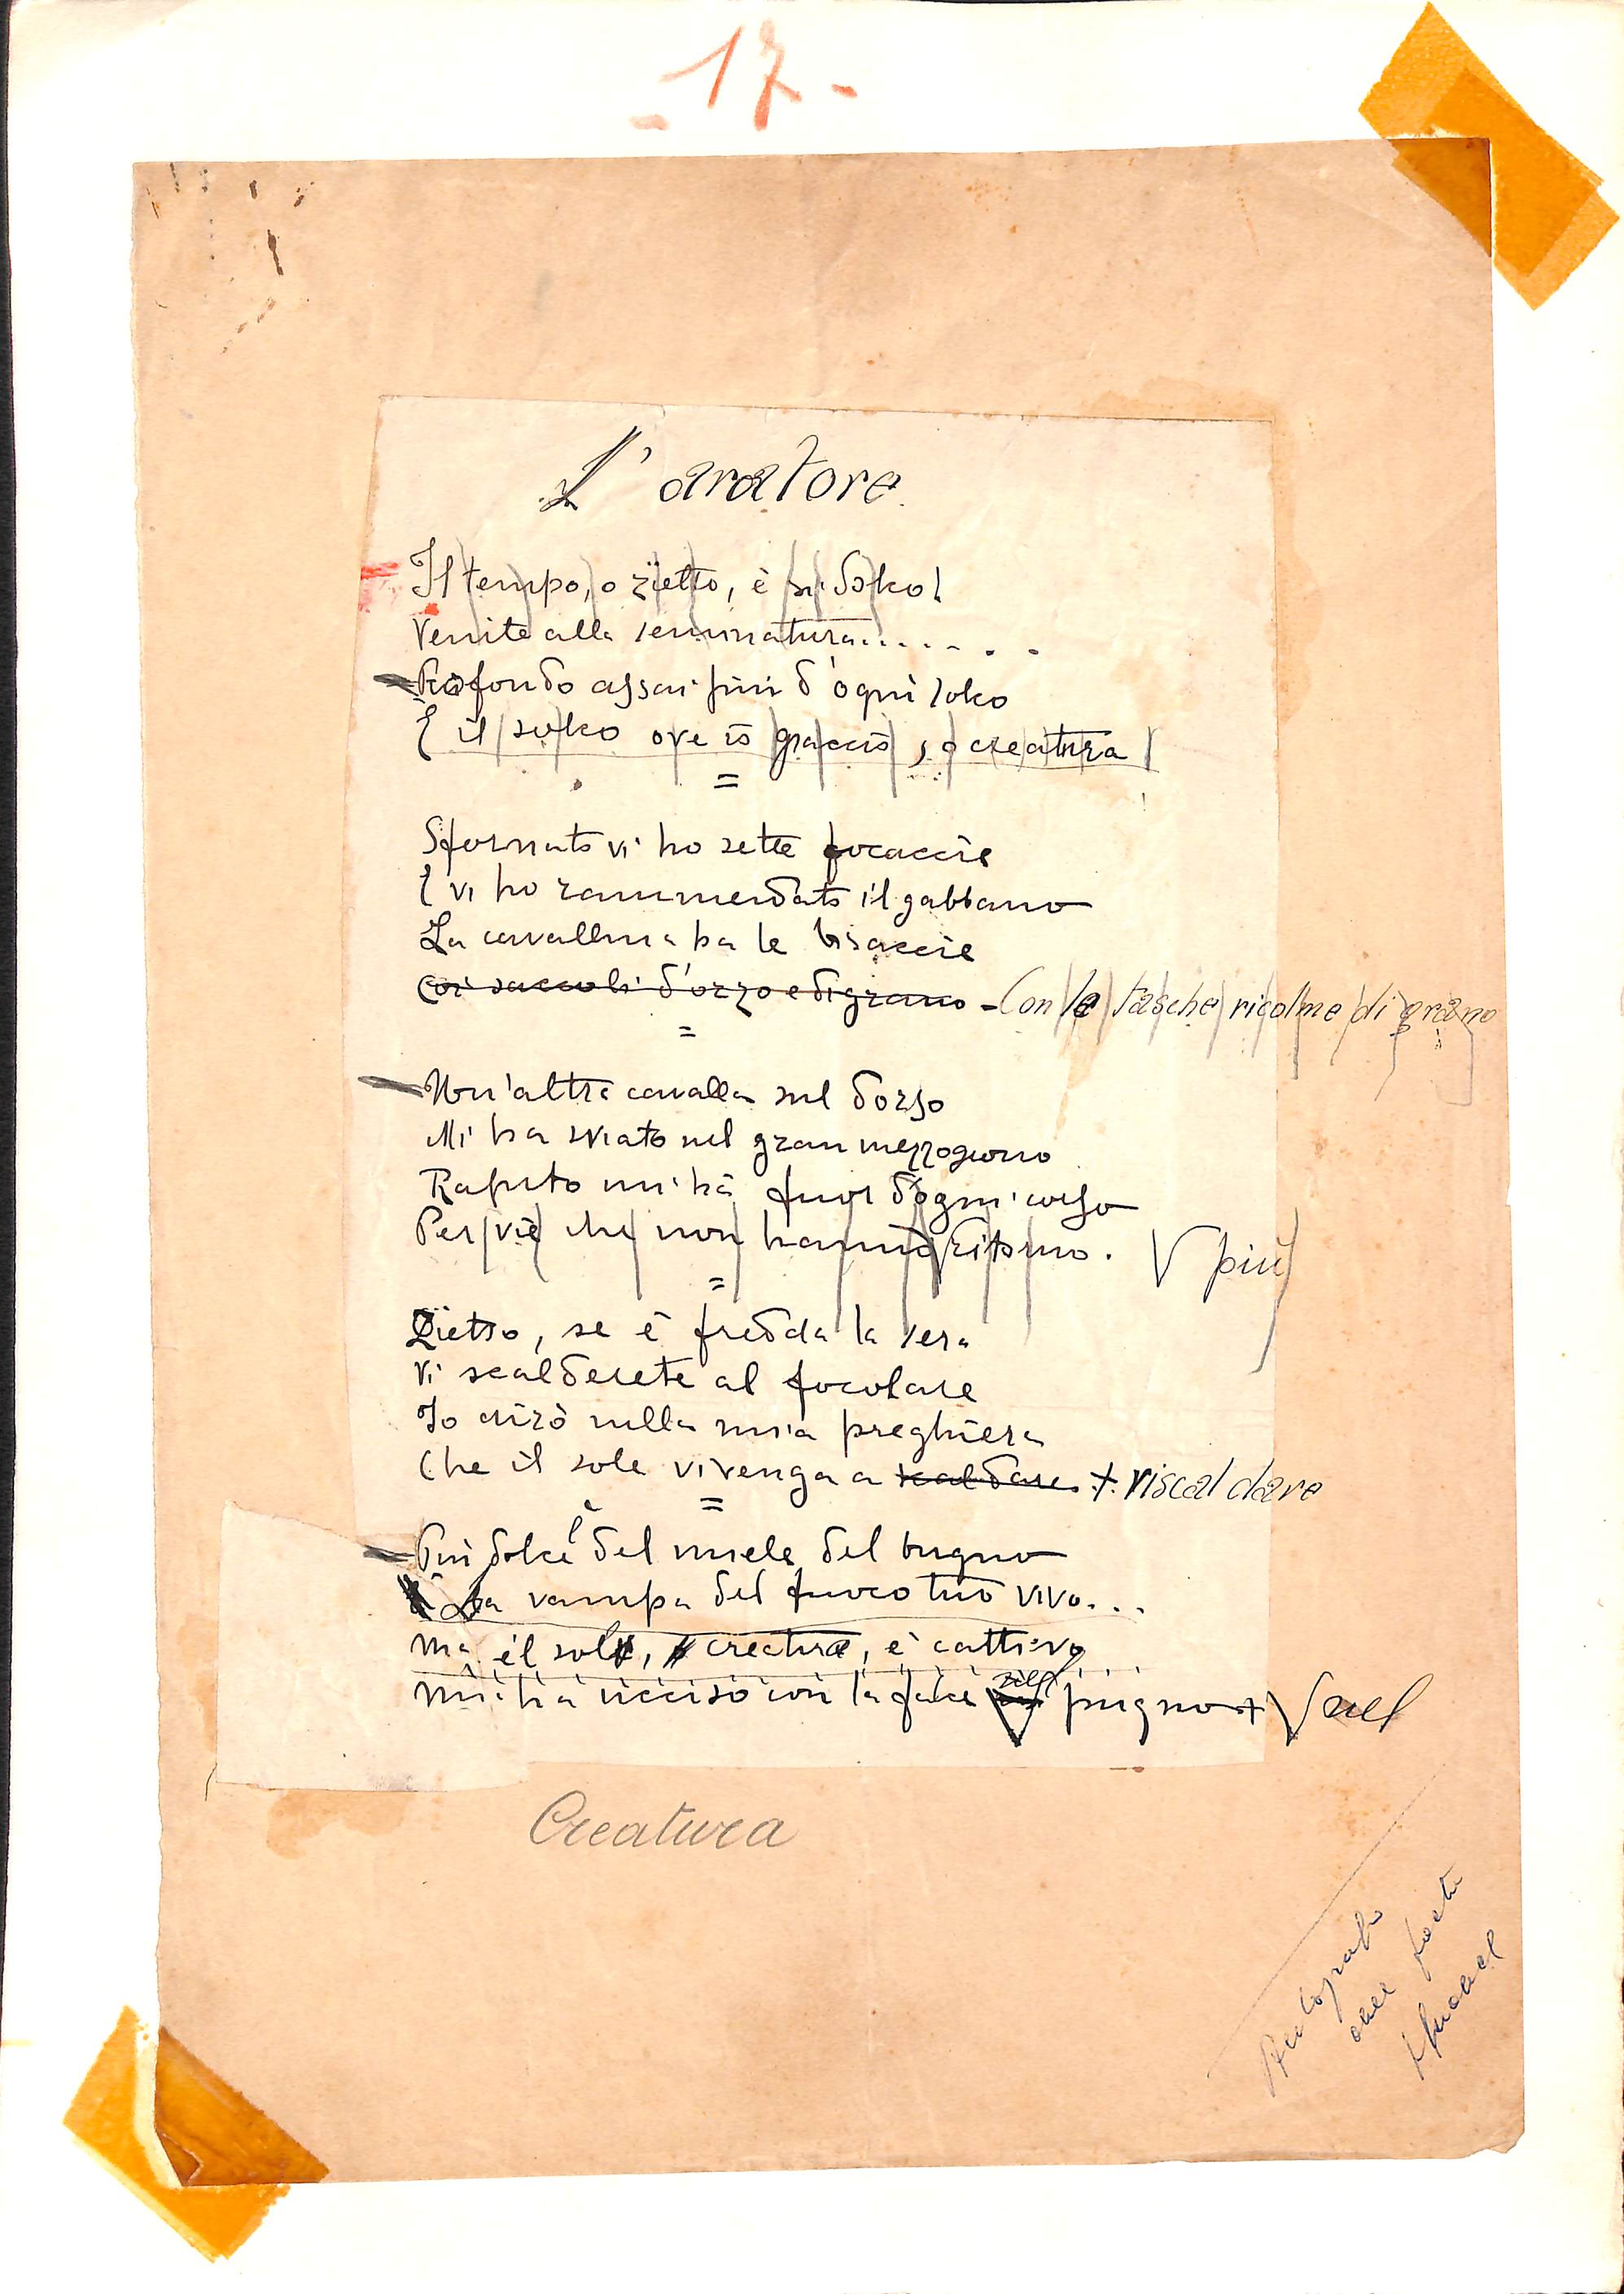 - 17 -
L'aratore
Il tempo, o zietto, è sì dolco!
Venite alla seminatura.......
Profondo assai più d'ogni solco
È il solco ove io giaccio, o creatura!
=
Sfornato vi ho sette focaccie
E vi ho rammendato il gabbano
La cavallina ha le bisaccie
Coi saccoli d'orzo e di grano - Con le tasche ricolme di grano
=
Un'altra cavalla sul dorso
Mi ha sviato nel gran mezzogiorno
Rapito mi ha fuor d'ogni corso
Per vie che non hanno ritorno. più
=
Zietto, se è fredda la sera
Vi scalderete al focolare
Io dirò nella mia preghiera
Che il sole vi venga a scaldare + riscaldare
=
Più dolce è del miele del bugno
La vampa del fuoco tuo vivo...
Ma il sole, creatura, è cattivo
Mi ha ucciso con la falce nel pugno + nel
Creatura
Autografo
del poeta